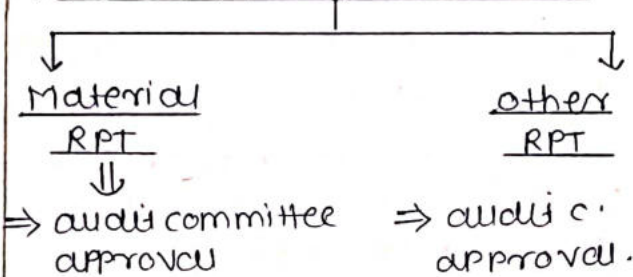 Material
RPT
⇒ audit committee
approval
other
RPT
⇒ audit c.
approval.